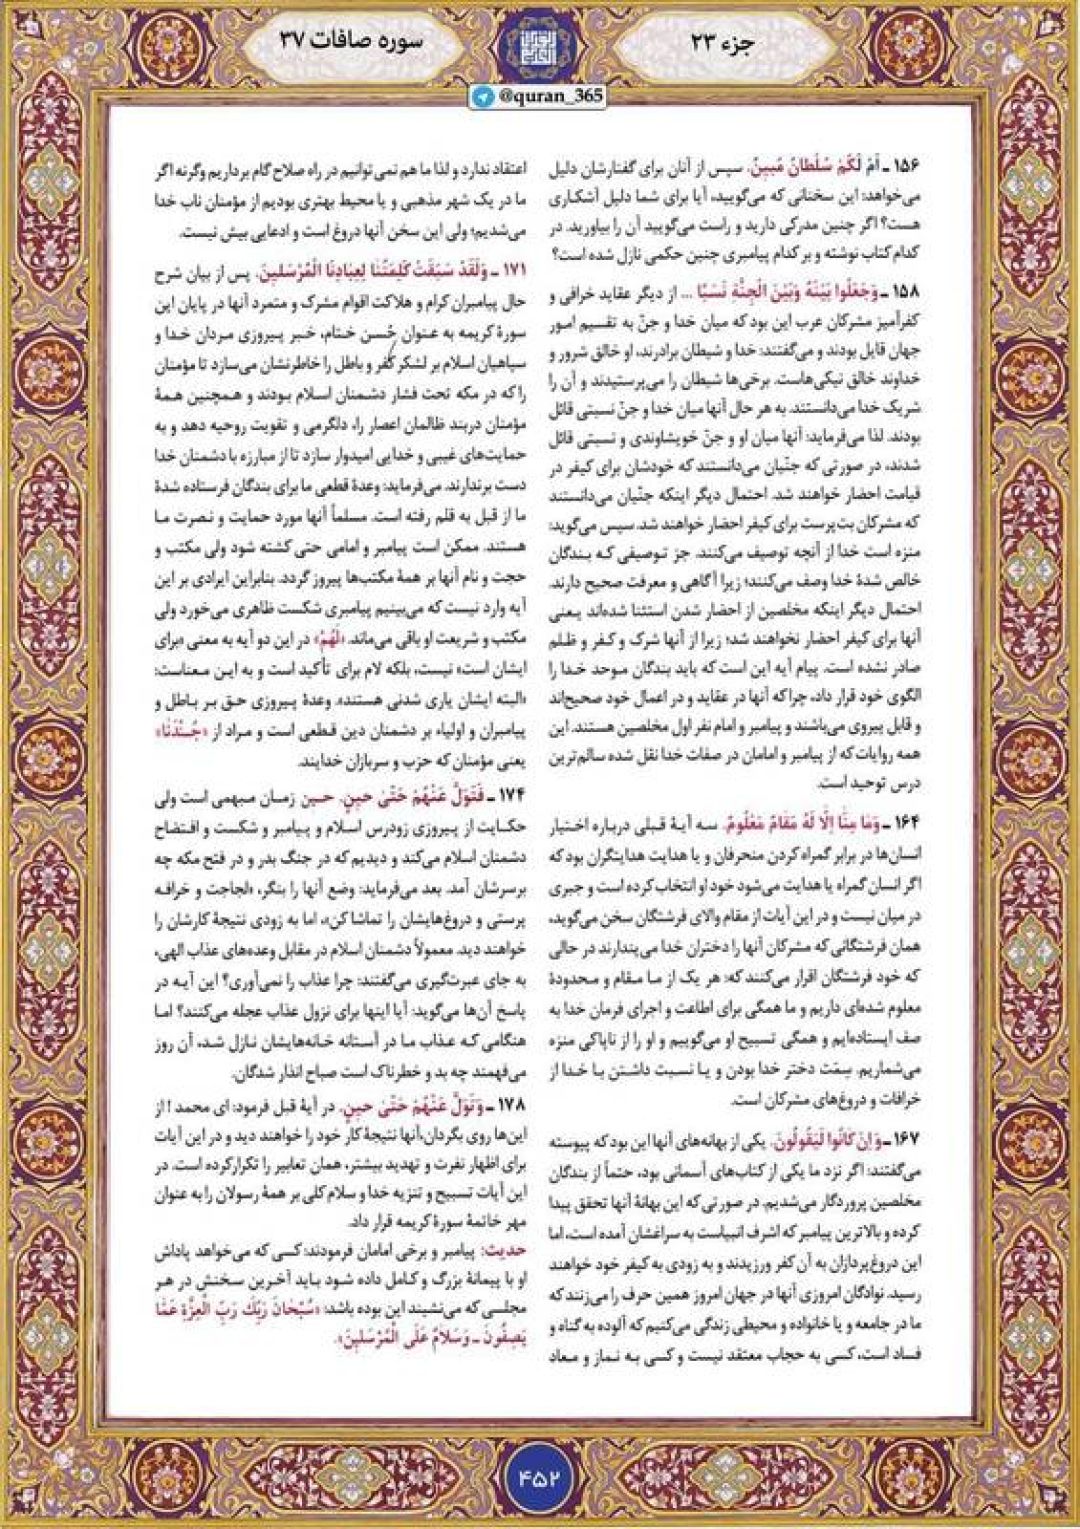 جزء ۲۳
سوره صافات ۳۷
@quran_365
۱۵۶ ـ اَمْ لَكُمْ سُلْطانٌ مُبینٌ. سپس از آنان برای گفتارشان دلیل
می‌خواهد: این سخنانی که می‌گویید، آیا برای شما دلیل آشکاری
هست؟ اگر چنین مدرکی دارید و راست می‌گویید آن را بیاورید. در
کدام کتاب نوشته و بر کدام پیامبری چنین حکمی نازل شده است؟
۱۵۸ ـ وَجَعَلُوا بَیْنَهُ وَبَیْنَ الْجِنَّةِ نَسَبًا ... از دیگر عقاید خرافی و
کفرآمیز مشرکان عرب این بود که میان خدا و جنّ به تقسیم امور
جهان قایل بودند و می‌گفتند: خدا و شیطان برادرند، او خالق شرور و
خداوند خالق نیکی‌هاست. برخی‌ها شیطان را می‌پرستیدند و آن را
شریک خدا می‌دانستند. به هر حال آنها میان خدا و جنّ نسبتی قائل
بودند. لذا می‌فرماید: آنها میان او و جنّ خویشاوندی و نسبتی قائل
شدند، در صورتی که جنّیان می‌دانستند که خودشان برای کیفر در
قیامت احضار خواهند شد. احتمال دیگر اینکه جنّیان می‌دانستند
که مشرکان بت‌پرست برای کیفر احضار خواهند شد. سپس می‌گوید:
منزه است خدا از آنچه توصیف می‌کنند. جز توصیفی که بندگان
خالص شدهٔ خدا وصف می‌کنند؛ زیرا آگاهی و معرفت صحیح دارند.
احتمال دیگر اینکه مخلصین از احضار شدن استثنا شده‌اند یعنی
آنها برای کیفر احضار نخواهند شد؛ زیرا از آنها شرک و کفر و ظلم
صادر نشده است. پیام آیه این است که باید بندگان موحد خدا را
الگوی خود قرار داد، چرا که آنها در عقاید و در اعمال خود صحیح‌اند
و قابل پیروی می‌باشند و پیامبر و امام نفر اول مخلصین هستند. این
همه روایات که از پیامبر و امامان در صفات خدا نقل شده سالم‌ترین
درس توحید است.
۱۶۴ ـ وَمَا مِنَّا اِلَّا لَهُ مَقامٌ مَعْلُومٌ. سه آیهٔ قبلی درباره اختیار
انسان‌ها در برابر گمراه کردن منحرفان و یا هدایت هدایتگران بود که
اگر انسان گمراه یا هدایت می‌شود خود او انتخاب کرده است و جبری
در میان نیست و در این آیات از مقام والای فرشتگان سخن می‌گوید،
همان فرشتگانی که مشرکان آنها را دختران خدا می‌پندارند در حالی
که خود فرشتگان اقرار می‌کنند که: هر یک از ما مقام و محدودهٔ
معلوم شده‌ای داریم و ما همگی برای اطاعت و اجرای فرمان خدا به
صف ایستاده‌ایم و همگی تسبیح او می‌گوییم و او را از ناپاکی منزه
می‌شماریم. سِمَت دختر خدا بودن و یا نسبت داشتن با خدا از
خرافات و دروغ‌های مشرکان است.
۱۶۷ ـ وَ اِنْ كَانُوا لَیَقُولُونَ. یکی از بهانه‌های آنها این بود که پیوسته
می‌گفتند: اگر نزد ما یکی از کتاب‌های آسمانی بود، حتماً از بندگان
مخلصین پروردگار می‌شدیم. در صورتی که این بهانهٔ آنها تحقق پیدا
کرده و بالاترین پیامبر که اشرف انبیاست به سراغشان آمده است، اما
این دروغ‌پردازان به آن کفر ورزیدند و به زودی به کیفر خود خواهند
رسید. نوادگان امروزی آنها در جهان امروز همین حرف را می‌زنند که
ما در جامعه و یا خانواده و محیطی زندگی می‌کنیم که آلوده به گناه و
فساد است، کسی به حجاب معتقد نیست و کسی به نماز و معاد
اعتقاد ندارد و لذا ما هم نمی‌توانیم در راه صلاح گام برداریم وگرنه اگر
ما در یک شهر مذهبی و یا محیط بهتری بودیم از مؤمنان ناب خدا
می‌شدیم؛ ولی این سخن آنها دروغ است و ادعایی بیش نیست.
۱۷۱ ـ وَلَقَدْ سَبَقَتْ كَلِمَتُنَا لِعِبَادِنَا الْمُرْسَلینَ. پس از بیان شرح
حال پیامبران کرام و هلاکت اقوام مشرک و متمرد آنها در پایان این
سورهٔ کریمه به عنوان حُسن ختام، خبر پیروزی مردان خدا و
سپاهیان اسلام بر لشکر کفر و باطل را خاطرنشان می‌سازد تا مؤمنان
را که در مکه تحت فشار دشمنان اسلام بودند و همچنین همهٔ
مؤمنان دربند ظالمان اعصار را، دلگرمی و تقویت روحیه دهد و به
حمایت‌های غیبی و خدایی امیدوار سازد تا از مبارزه با دشمنان خدا
دست برندارند. می‌فرماید: وعدهٔ قطعی ما برای بندگان فرستاده شدهٔ
ما از قبل به قلم رفته است. مسلماً آنها مورد حمایت و نصرت ما
هستند. ممکن است پیامبر و امامی حتی کشته شود ولی مکتب و
حجت و نام آنها بر همهٔ مکتب‌ها پیروز گردد. بنابراین ایرادی بر این
آیه وارد نیست که می‌بینیم پیامبری شکست ظاهری می‌خورد ولی
مکتب و شریعت او باقی می‌ماند. «لَهُمْ» در این دو آیه به معنی «برای
ایشان است» نیست، بلکه لام برای تأکید است و به این معناست:
«البته ایشان یاری شدنی هستند». وعدهٔ پیروزی حق بر باطل و
پیامبران و اولیاء بر دشمنان دین قطعی است و مراد از «جُنْدَنَا»
یعنی مؤمنان که حزب و سربازان خدایند.
۱۷۴ ـ فَتَوَلَّ عَنْهُمْ حَتّىٰ حینٍ. حین زمان مبهمی است ولی
حکایت از پیروزی زودرس اسلام و پیامبر و شکست و افتضاح
دشمنان اسلام می‌کند و دیدیم که در جنگ بدر و در فتح مکه چه
برسرشان آمد. بعد می‌فرماید: وضع آنها را بنگر، «لجاجت و خرافه
پرستی و دروغ‌هایشان را تماشا کن»، اما به زودی نتیجهٔ کارشان را
خواهند دید. معمولاً دشمنان اسلام در مقابل وعده‌های عذاب الهی،
به جای عبرت‌گیری می‌گفتند: چرا عذاب را نمی‌آوری؟ این آیه در
پاسخ آن‌ها می‌گوید: آیا اینها برای نزول عذاب عجله می‌کنند؟ اما
هنگامی که عذاب ما در آستانه خانه‌هایشان نازل شد، آن روز
می‌فهمند چه بد و خطرناک است صباح انذار شدگان.
۱۷۸ ـ وَتَوَلَّ عَنْهُمْ حَتّىٰ حینٍ. در آیهٔ قبل فرمود: ای محمد! از
این‌ها روی بگردان، آنها نتیجهٔ کار خود را خواهند دید و در این آیات
برای اظهار نفرت و تهدید بیشتر، همان تعابیر را تکرار کرده است. در
این آیات تسبیح و تنزیه خدا و سلام کلی بر همهٔ رسولان را به عنوان
مهر خاتمهٔ سورهٔ کریمه قرار داد.
حدیث: پیامبر و برخی امامان فرمودند: کسی که می‌خواهد پاداش
او با پیمانهٔ بزرگ و کامل داده شود باید آخرین سخنش در هر
مجلسی که می‌نشیند این بوده باشد: «سُبْحَانَ رَبِّكَ رَبِّ الْعِزَّةِ عَمَّا
یَصِفُونَ ـ وَسَلَامٌ عَلَى الْمُرْسَلینَ».
۴۵۲